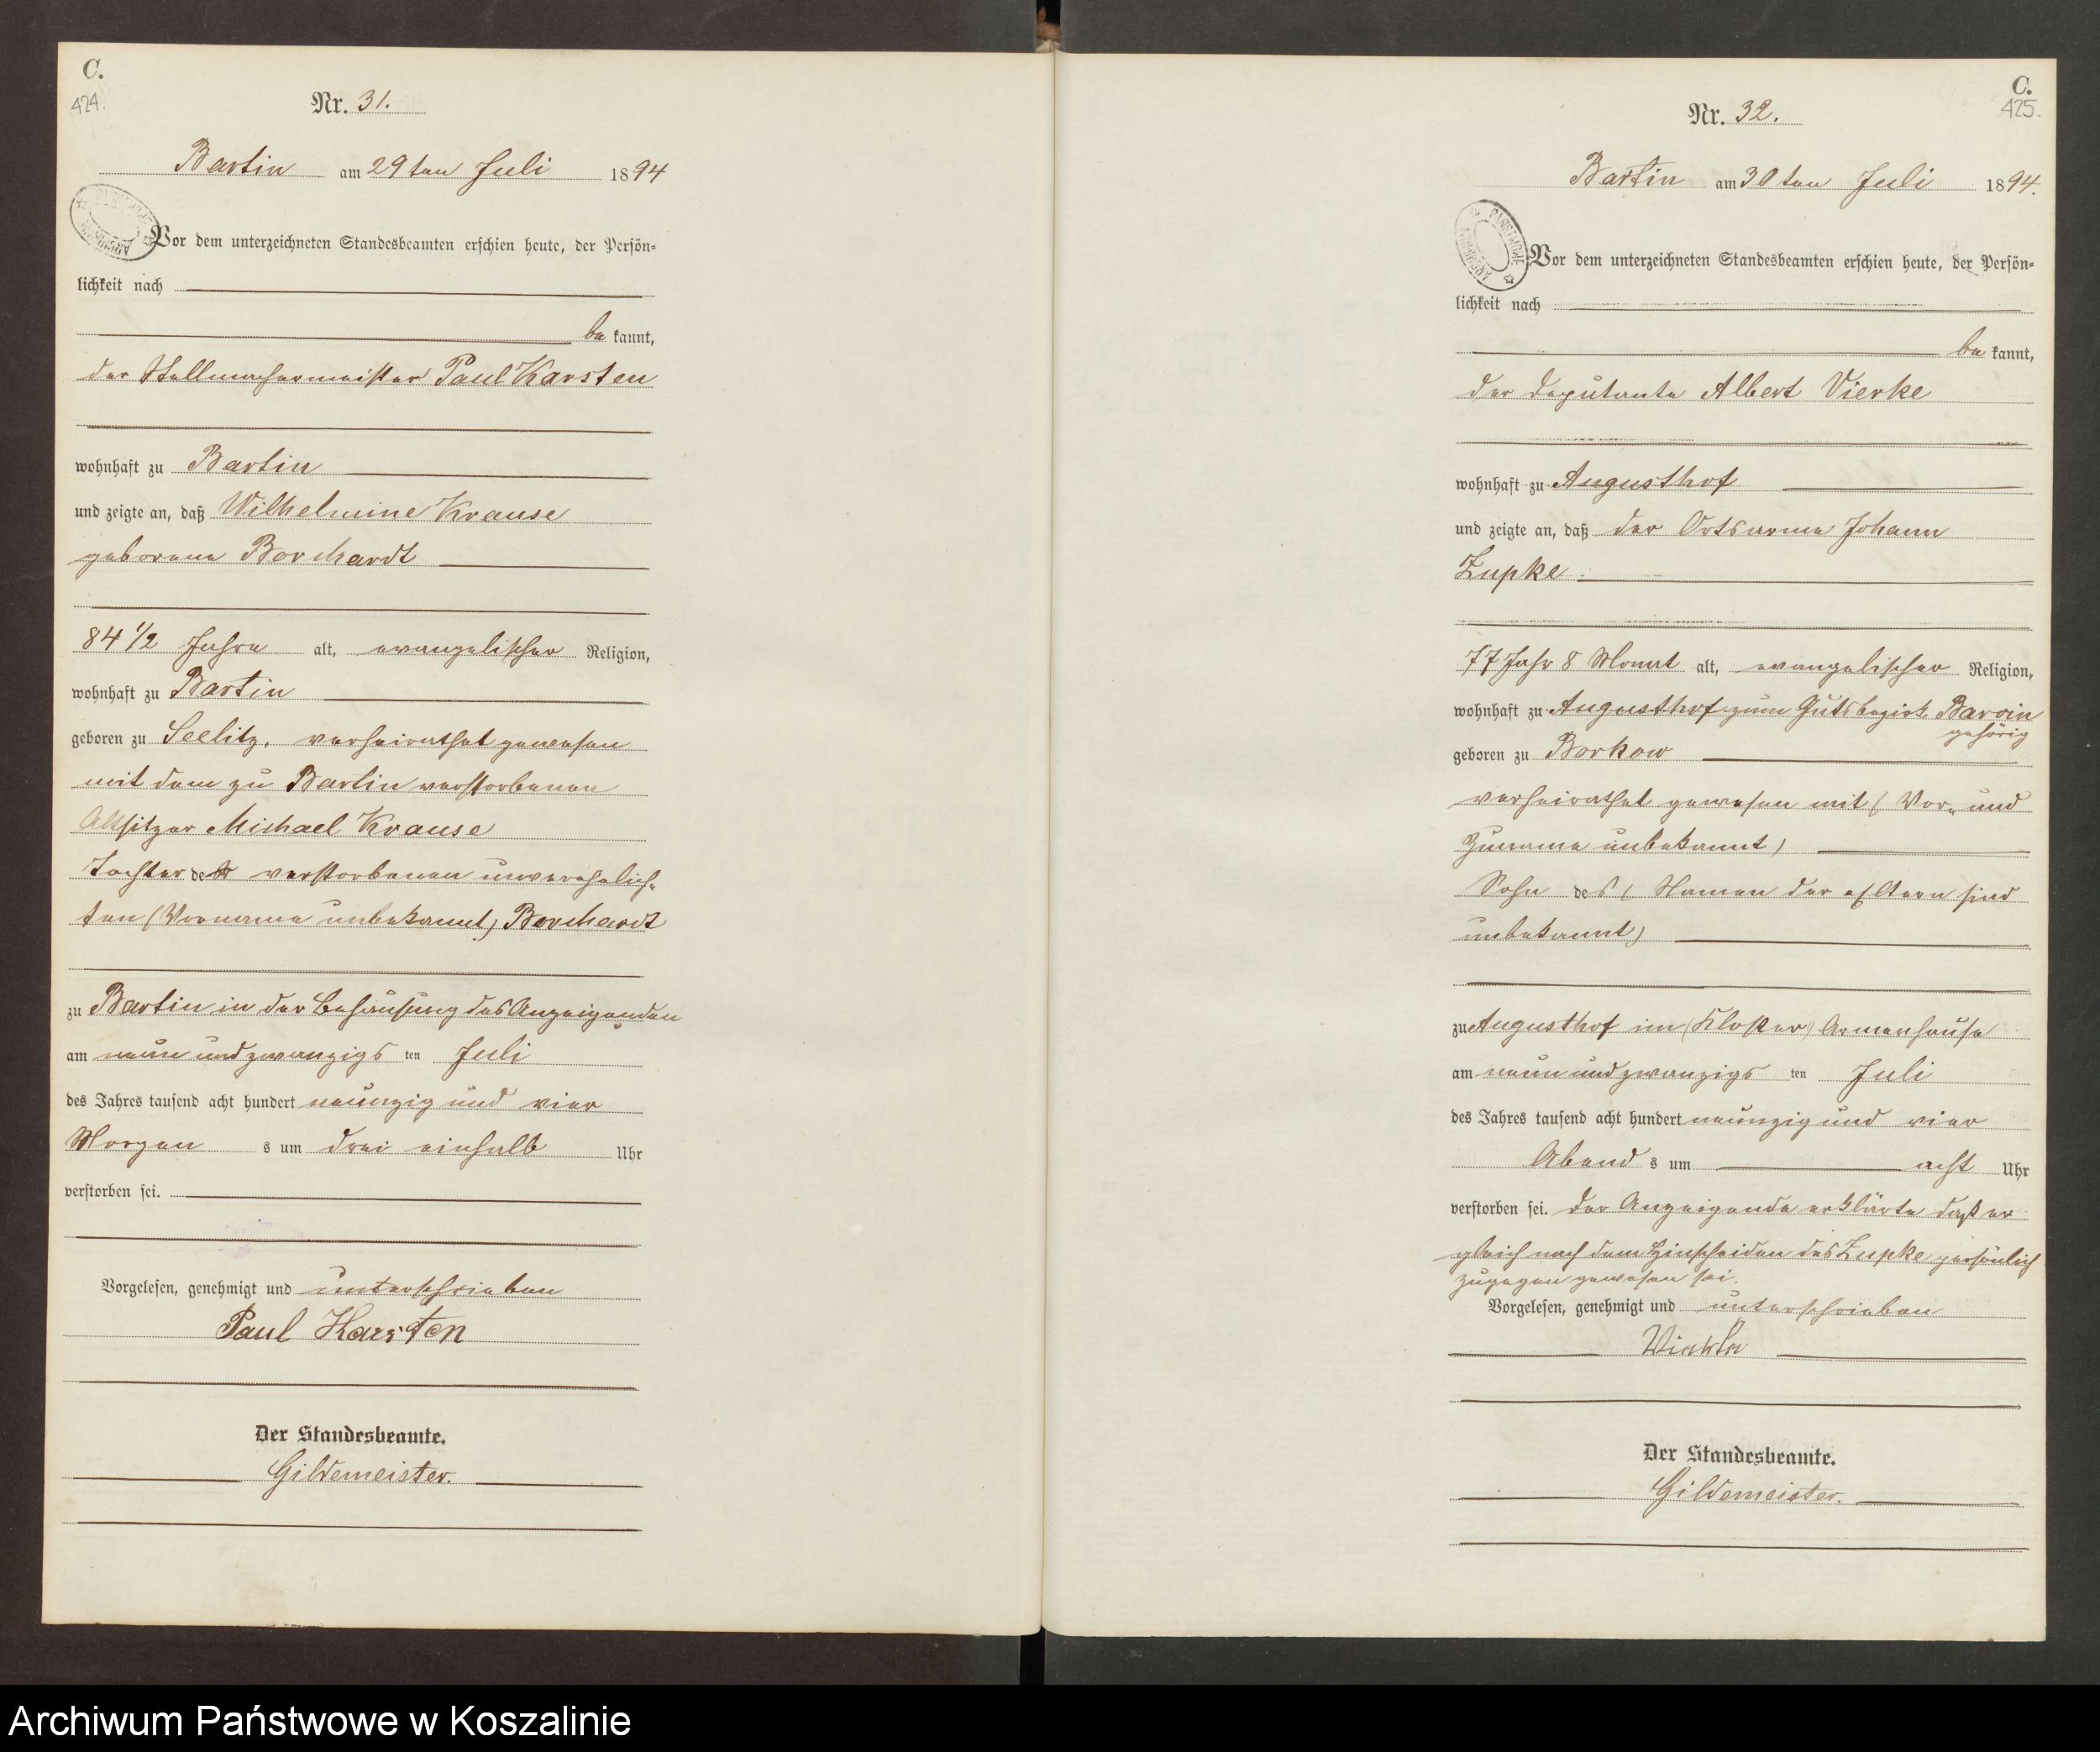 C.
424.
Nr. 31.
Bartin am 29ten Juli 1894
Vor dem unterzeichneten Standesbeamten erschien heute, der Persön-
lichkeit nach
be kannt,
der Stellmachermeister Paul Karsten
wohnhaft zu Bartin
und zeigte an, daß Wilhelmine Krause
geborene Borchardt
84 1/2 Jahre alt, evangelischer Religion,
wohnhaft zu Bartin
geboren zu Seelitz, verheirathet gewesen
mit dem zu Bartin verstorbenen
Altsitzer Michael Krause
Tochter der verstorbenen unverehelich-
ten (Vorname unbekannt) Borchardt
zu Bartin in der Behausung des Anzeigenden
am neun und zwanzigs ten Juli
des Jahres tausend acht hundert neunzig und vier
Morgen s um drei einhalb Uhr
verstorben sei.
Vorgelesen, genehmigt und unterschrieben
Paul Karsten
Der Standesbeamte.
Gildemeister.
C.
425.
Nr. 32.
Bartin am 30ten Juli 1894.
PAŃSTWOWE ARCHIWUM
Vor dem unterzeichneten Standesbeamten erschien heute, der Persön-
lichkeit nach
be kannt,
der Deputante Albert Vierke
wohnhaft zu Augusthof
und zeigte an, daß der Ortsarme Johann
Zupke
77 Jahr 8 Monat alt, evangelischer Religion,
wohnhaft zu Augusthof zum Gutsbezirk Barvin
gehörig
geboren zu Borkow
verheirathet gewesen mit (Vor- und
Zuname unbekannt)
Sohn des (Namen der Eltern sind
unbekannt)
zu Augusthof im (Kloster) Armenhause
am neun und zwanzigs ten Juli
des Jahres tausend acht hundert neunzig und vier
Abend s um acht Uhr
verstorben sei. Der Anzeigende erklärte daß er
gleich nach dem Hinscheiden des Zupke persönlich
zugegen gewesen sei.
Vorgelesen, genehmigt und unterschrieben
Der Standesbeamte.
Gildemeister.
Archiwum Państwowe w Koszalinie